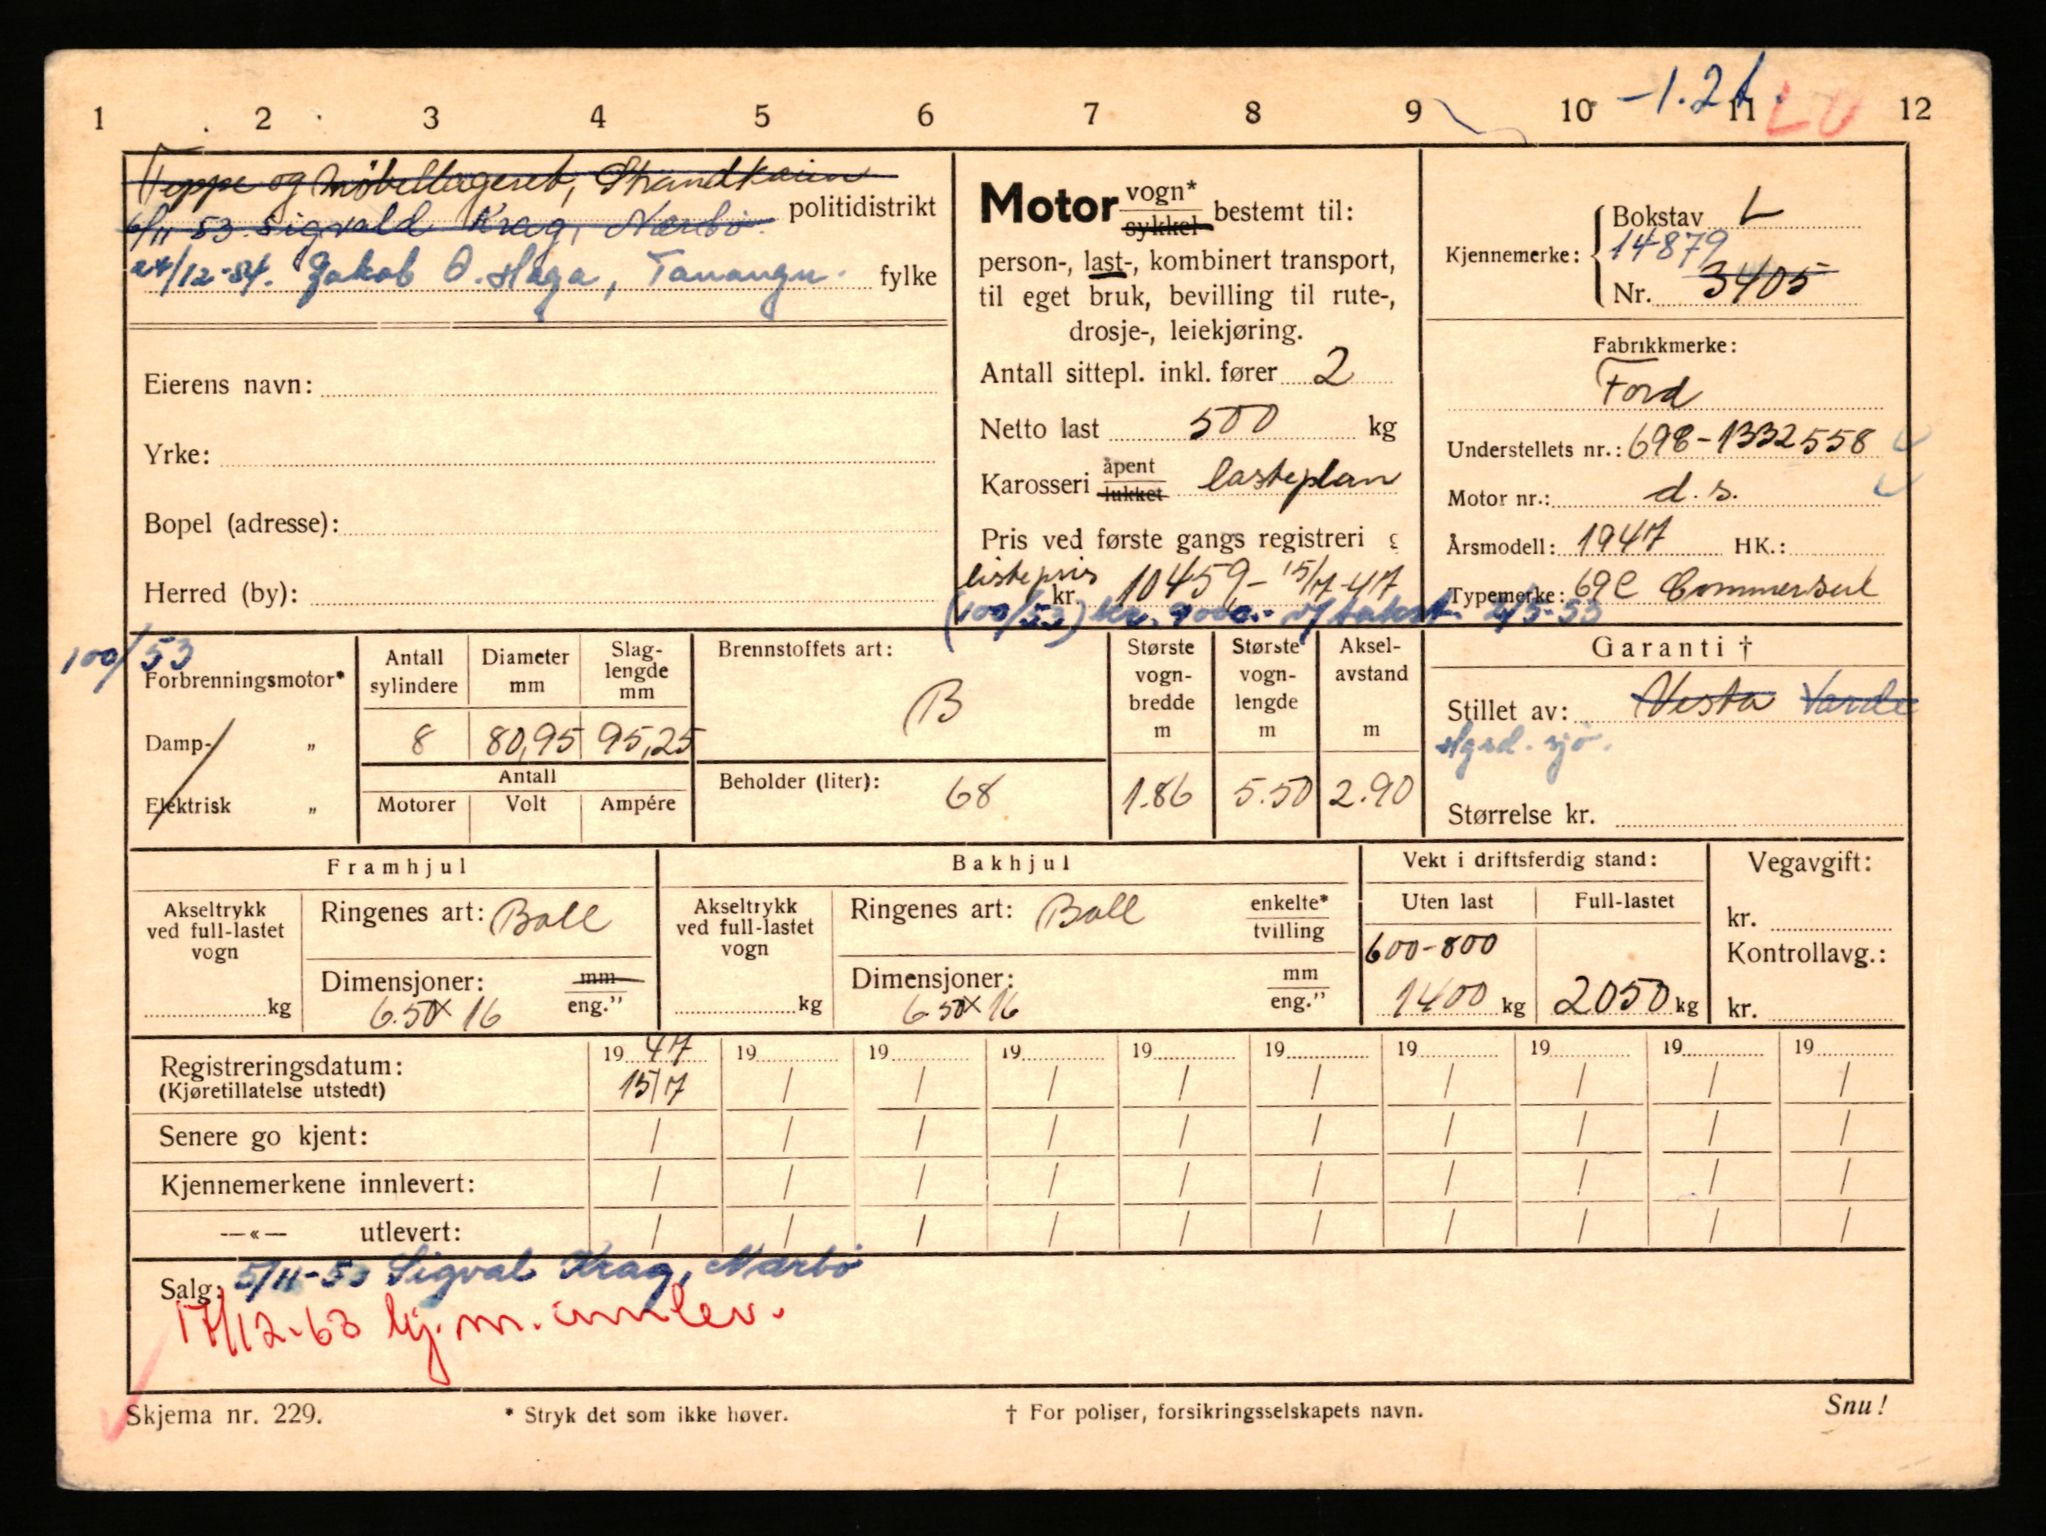 1 2 3 4 5 6 7 8 9 10 11 12
-1.2t. LU
Teppe og møbellageret, Strandkaien
politidistrikt
6/11 53. Sigvald Krag, Nærbø.
24/12-54. Jakob O. Haga, Tananger.
fylke
Eierens navn:
Yrke:
Bopel (adresse):
Herred (by):
Motor vogn* sykkel bestemt til:
person-, last-, kombinert transport,
til eget bruk, bevilling til rute-,
drosje-, leiekjøring.
Antall sittepl. inkl. fører 2
Netto last 500 kg
Karosseri åpent lukket lasteplan
Pris ved første gangs registreri g
listepris kr. 10459,- 15/7-47
(100/53) kr. 9000.- 2/5-53
Kjennemerke:
Bokstav L
14879
Nr. 3405
Fabrikkmerke:
Ford
Understellets nr.: 698-1332558
Motor nr.: d.s.
Årsmodell: 1947 HK.:
Typemerke: 69C Commersiel
100/53
Forbrenningsmotor*
Damp- „
Elektrisk „
Antall sylindere
Diameter mm
Slag-lengde mm
8 80,95 95,25
Antall
Motorer Volt Ampére
Brennstoffets art:
B
Beholder (liter):
68
Største vogn-bredde m
Største vogn-lengde m
Aksel-avstand m
1.86 5.50 2.90
Garanti †
Stillet av: Vesta Varde
Hgsd. sjø.
Størrelse kr.
Framhjul
Akseltrykk ved full-lastet vogn
kg
Ringenes art: Ball
Dimensjoner: mm eng."
6.50x16
Bakhjul
Akseltrykk ved full-lastet vogn
kg
Ringenes art: Ball enkelte* tvilling
Dimensjoner: mm eng."
6 50x16
Vekt i driftsferdig stand:
Uten last Full-lastet
600-800
1400 kg 2050 kg
Vegavgift:
kr.
Kontrollavg.:
kr.
Registreringsdatum: 19 47 19 19 19 19 19 19 19 19 19
(Kjøretillatelse utstedt) 15/7 / / / / / / / / /
Senere go kjent: / / / / / / / / / /
Kjennemerkene innlevert: / / / / / / / / / /
—«— utlevert: / / / / / / / / / /
Salg: 5/11-53 Sigval Krag, Nærbø
17/12-63 kj.m. innlev.
Skjema nr. 229.
* Stryk det som ikke høver.
† For poliser, forsikringsselskapets navn.
Snu!